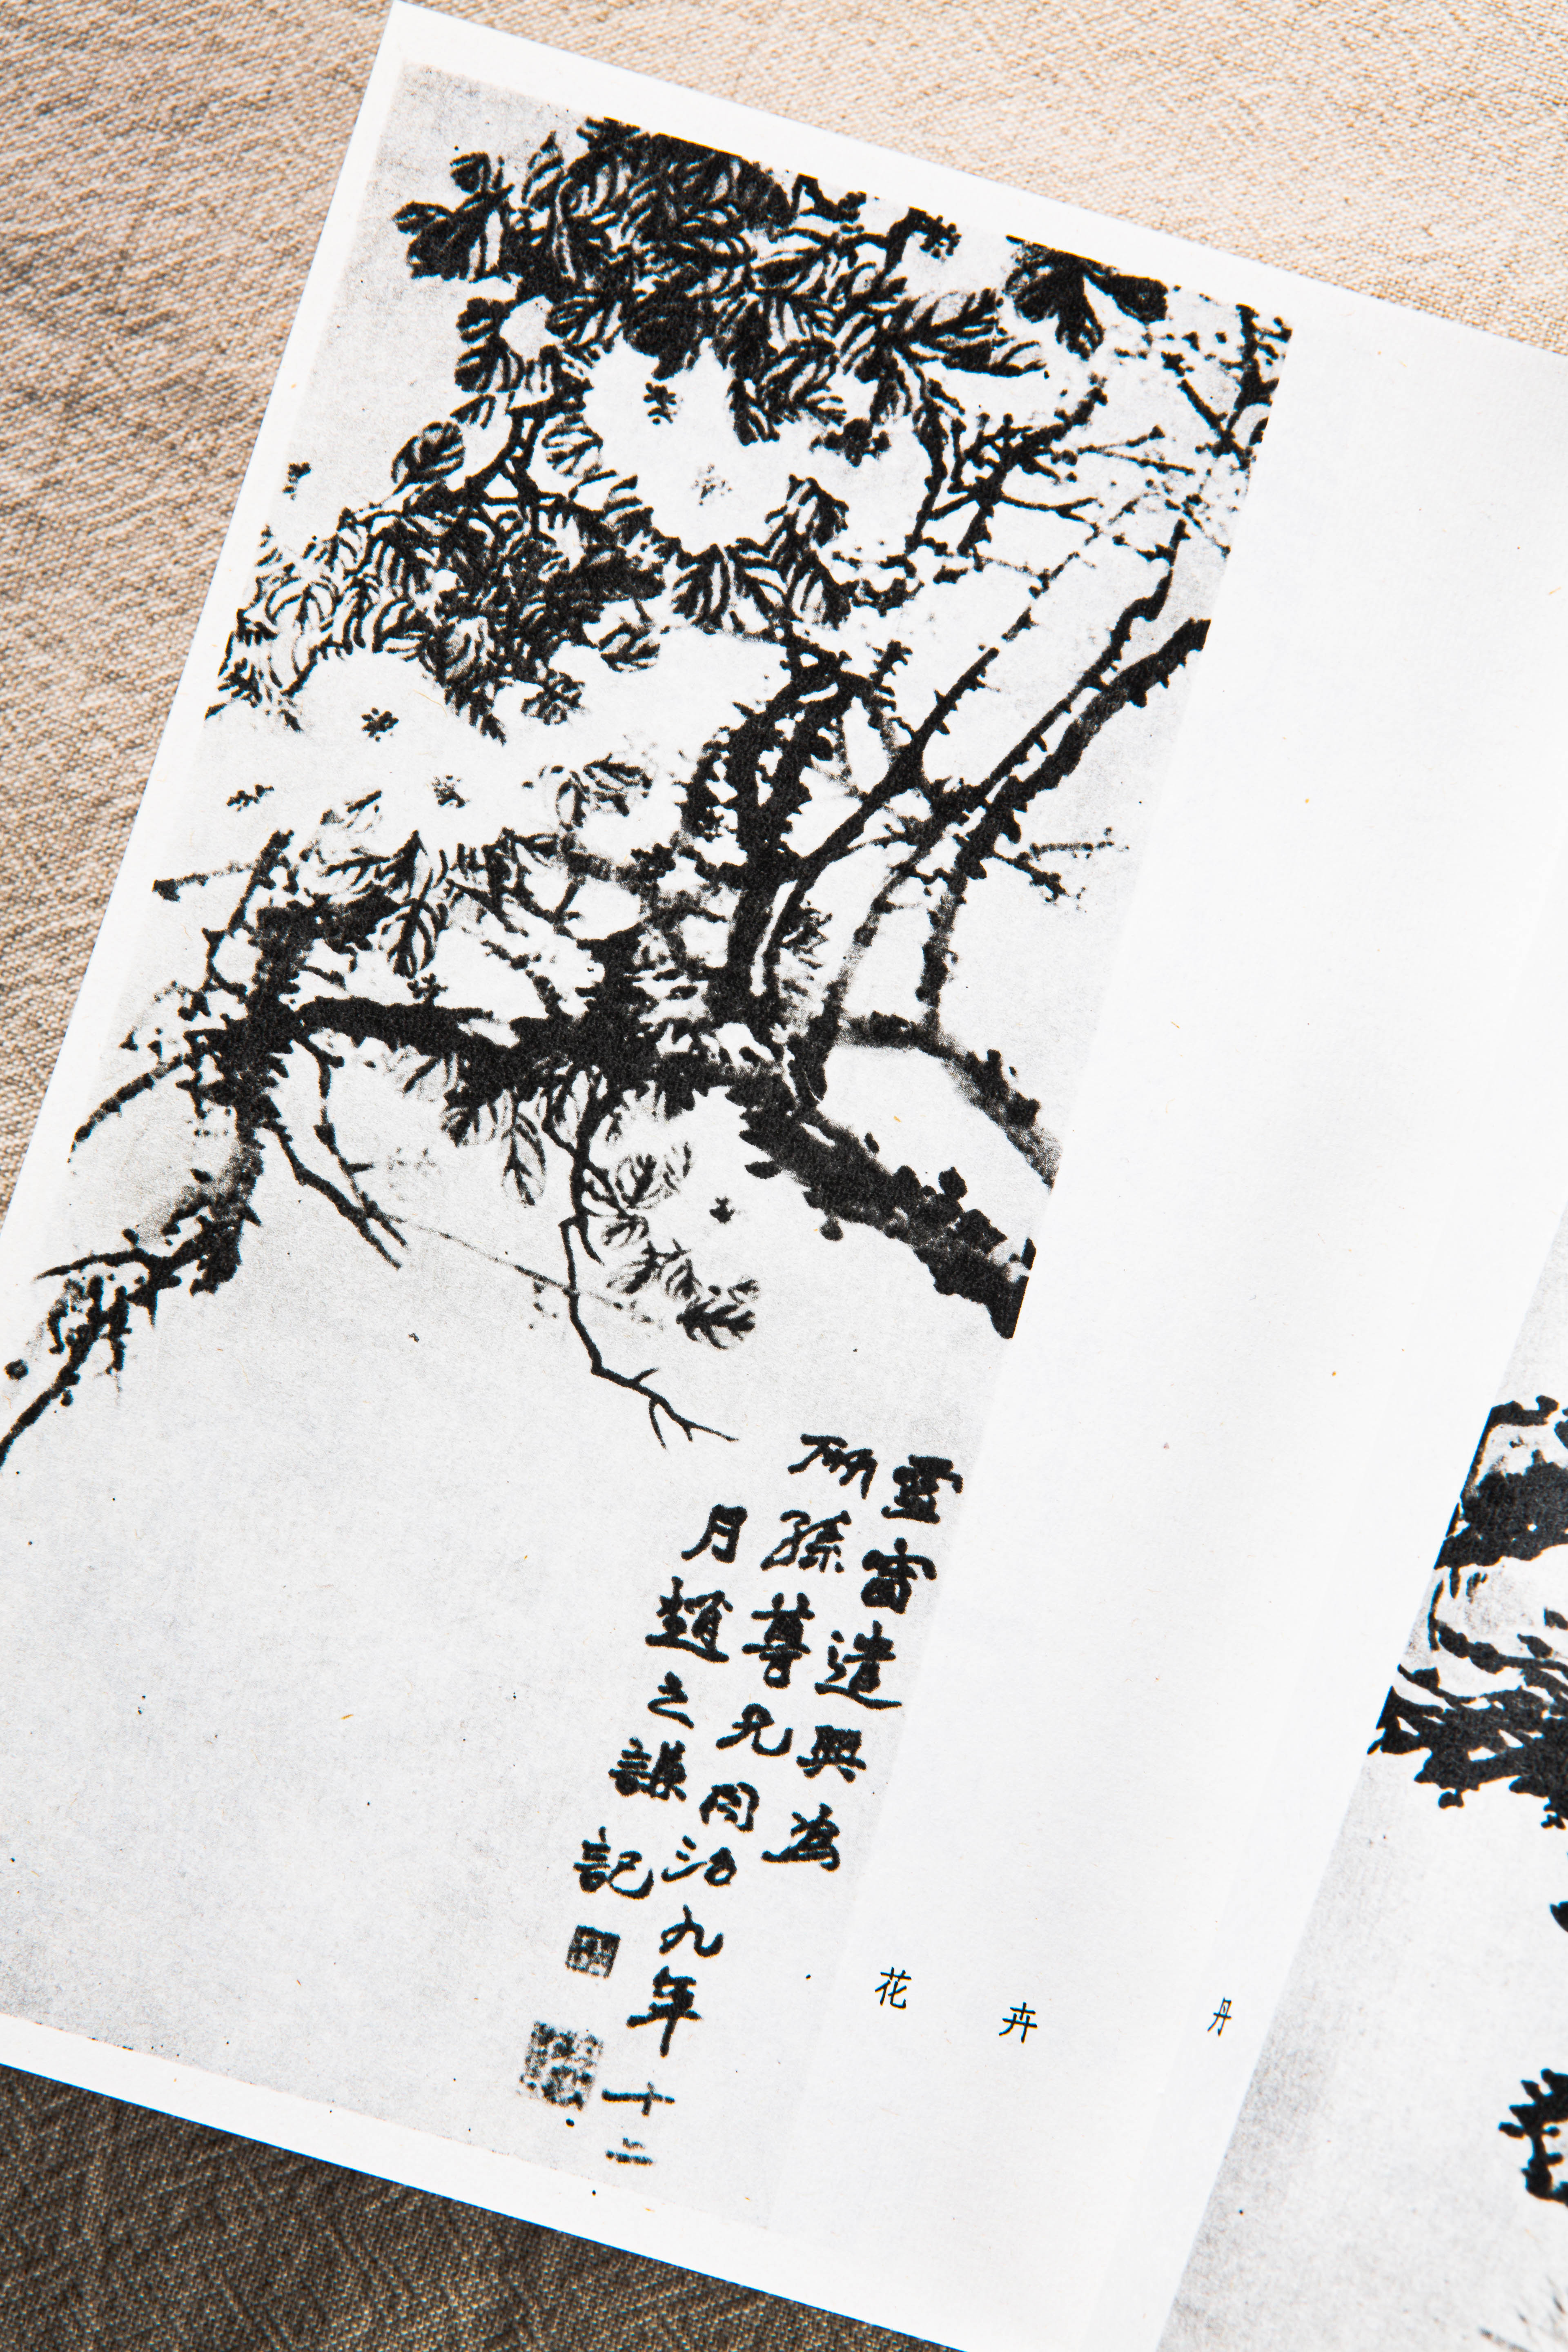 雪窗遣興為
研孫尊兄同治九年十二
月趙之謙記
花卉
丹